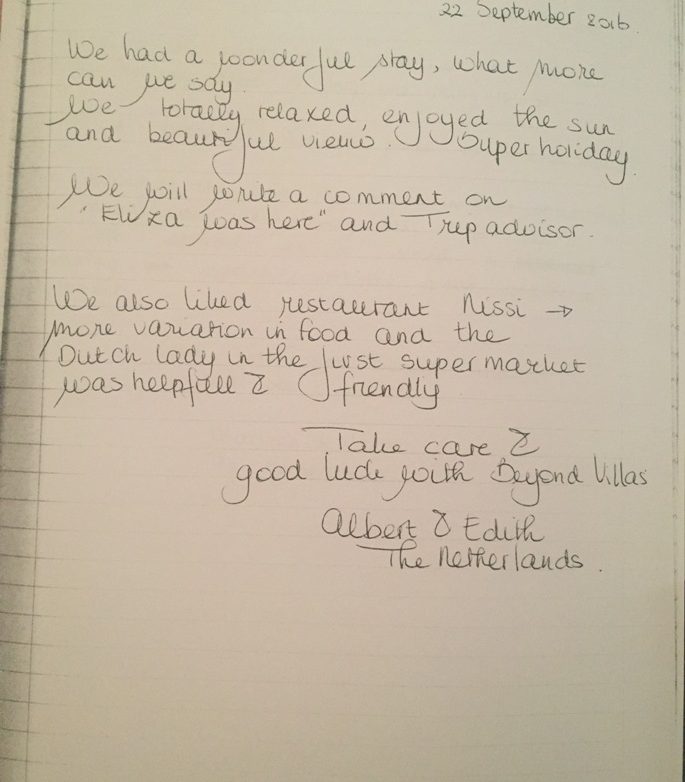 22 September 2016
We had a wonderful stay, what more
can we say.
We totally relaxed, enjoyed the sun
and beautiful views. Super holiday.
We will write a comment on
"Eliza was here" and Trip advisor.
We also liked restaurant Nissi →
more variation in food and the
Dutch lady in the first super market
was helpfull & friendly
Take care &
good luck with Beyond Villas
Albert & Edith
The Netherlands.